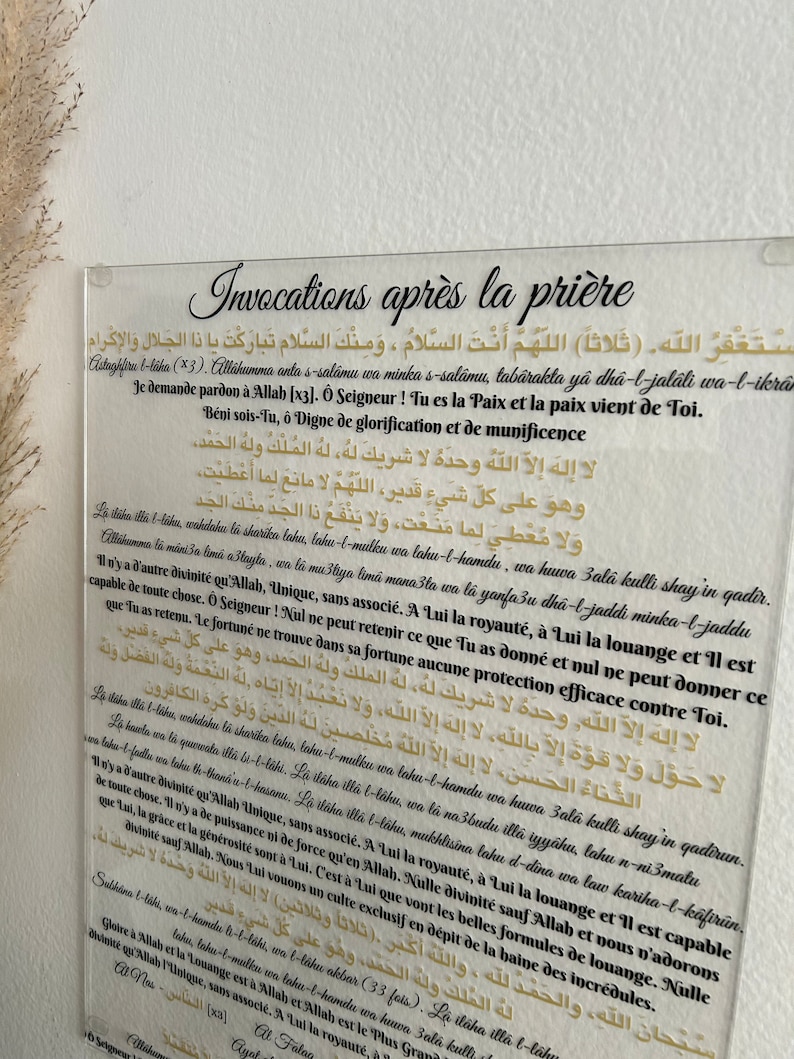 Invocations après la prière
سْتَغْفِرُ اللّٰه. (ثَلاثاً) اللّهُمَّ أَنْتَ السَّلامُ ، وَمِنْكَ السَّلام تَبارَكْتَ يا ذا الجَلال وَالإكْرام
Astaghfiru l-lâha (x3). Allâhumma anta s-salâmu wa minka s-salâmu, tabârakta yâ dhâ-l-jalâli wa-l-ikrâ
Je demande pardon à Allah [x3]. Ô Seigneur ! Tu es la Paix et la paix vient de Toi.
Béni sois-Tu, ô Digne de glorification et de munificence
لا إلهَ إلاّ اللّهُ وحدَهُ لا شريكَ لهُ، لهُ المُلْكُ ولهُ الحَمْد،
وهوَ على كلّ شَيءٍ قَدير، اللّهُمَّ لا مانِعَ لِما أَعْطَيْت،
وَلا مُعْطِيَ لِما مَنَعْت، وَلا يَنْفَعُ ذا الجَدِّ مِنْكَ الجَد
Lâ ilâha illâ l-lâhu, wahdahu lâ sharîka lahu, lahu-l-mulku wa lahu-l-hamdu , wa huwa 3alâ kulli shay'in qadîr.
Allâhumma lâ mâni3a limâ a3tayta , wa lâ mu3tiya limâ mana3ta wa lâ yanfa3u dhâ-l-jaddi minka-l-jaddu
Il n'y a d'autre divinité qu'Allah, Unique, sans associé. A Lui la royauté, à Lui la louange et Il est
capable de toute chose. Ô Seigneur ! Nul ne peut retenir ce que Tu as donné et nul ne peut donner ce
que Tu as retenu. Le fortuné ne trouve dans sa fortune aucune protection efficace contre Toi.
لا إلهَ إلاّ اللّه, وحدَهُ لا شريكَ لهُ، لهُ الملكُ ولهُ الحَمد، وهوَ على كلّ شيءٍ قدير،
لا حَوْلَ وَلا قوَّةَ إِلاّ بِاللّهِ، لا إلهَ إلاّ اللّه، وَلا نَعْبُدُ إلاّ إيّاه ,لَهُ النِّعْمَةُ وَلَهُ الفَضْل وَلَهُ
الثَّناءُ الحَسَن، لا إلهَ إلاّ اللّهُ مُخْلِصينَ لَهُ الدِّينَ وَلَوْ كَرِهَ الكافِرون
Lâ ilâha illâ l-lâhu, wahdahu lâ sharîka lahu, lahu-l-mulku wa lahu-l-hamdu wa huwa 3alâ kulli shay'in qadîrun.
Lâ hawla wa lâ quwwata illâ bi-l-lâhi. Lâ ilâha illâ l-lâhu, wa lâ na3budu illâ iyyâhu, lahu n-ni3matu
wa lahu-l-fadlu wa lahu th-thanâ'u-l-hasanu. Lâ ilâha illâ l-lâhu, mukhlisîna lahu d-dîna wa law kariha-l-kâfirûn.
Il n'y a d'autre divinité qu'Allah Unique, sans associé. A Lui la royauté, à Lui la louange et Il est capable
de toute chose. Il n'y a de puissance ni de force qu'en Allah. Nulle divinité sauf Allah et nous n'adorons
que Lui, la grâce et la générosité sont à Lui. C'est à Lui que vont les belles formules de louange. Nulle
divinité sauf Allah. Nous Lui vouons un culte exclusif en dépit de la haine des incrédules.
سُبْحانَ اللهِ، والحَمْدُ للهِ ، واللهُ أكْبَر .(ثلاثاً وثلاثين) لا إلهَ إلاّ اللّهُ وَحْدَهُ لا شريكَ لهُ،
لهُ المُلكُ ولهُ الحَمْد، وهُوَ على كُلّ شَيءٍ قَدير
Subhâna l-lâhi, wa-l-hamdu li-l-lâhi, wa l-lâhu akbar (33 fois). Lâ ilâha illâ l-lâhu
lahu, lahu-l-mulku wa lahu-l-hamdu wa huwa 3alâ kulli
Gloire à Allah et la Louange est à Allah et Allah est le Plus Grand
divinité qu'Allah l'Unique, sans associé. A Lui la royauté, à
Al Nas - النَّاس [x3]
Al Falaq
Ô Seigneur
Allâhumma